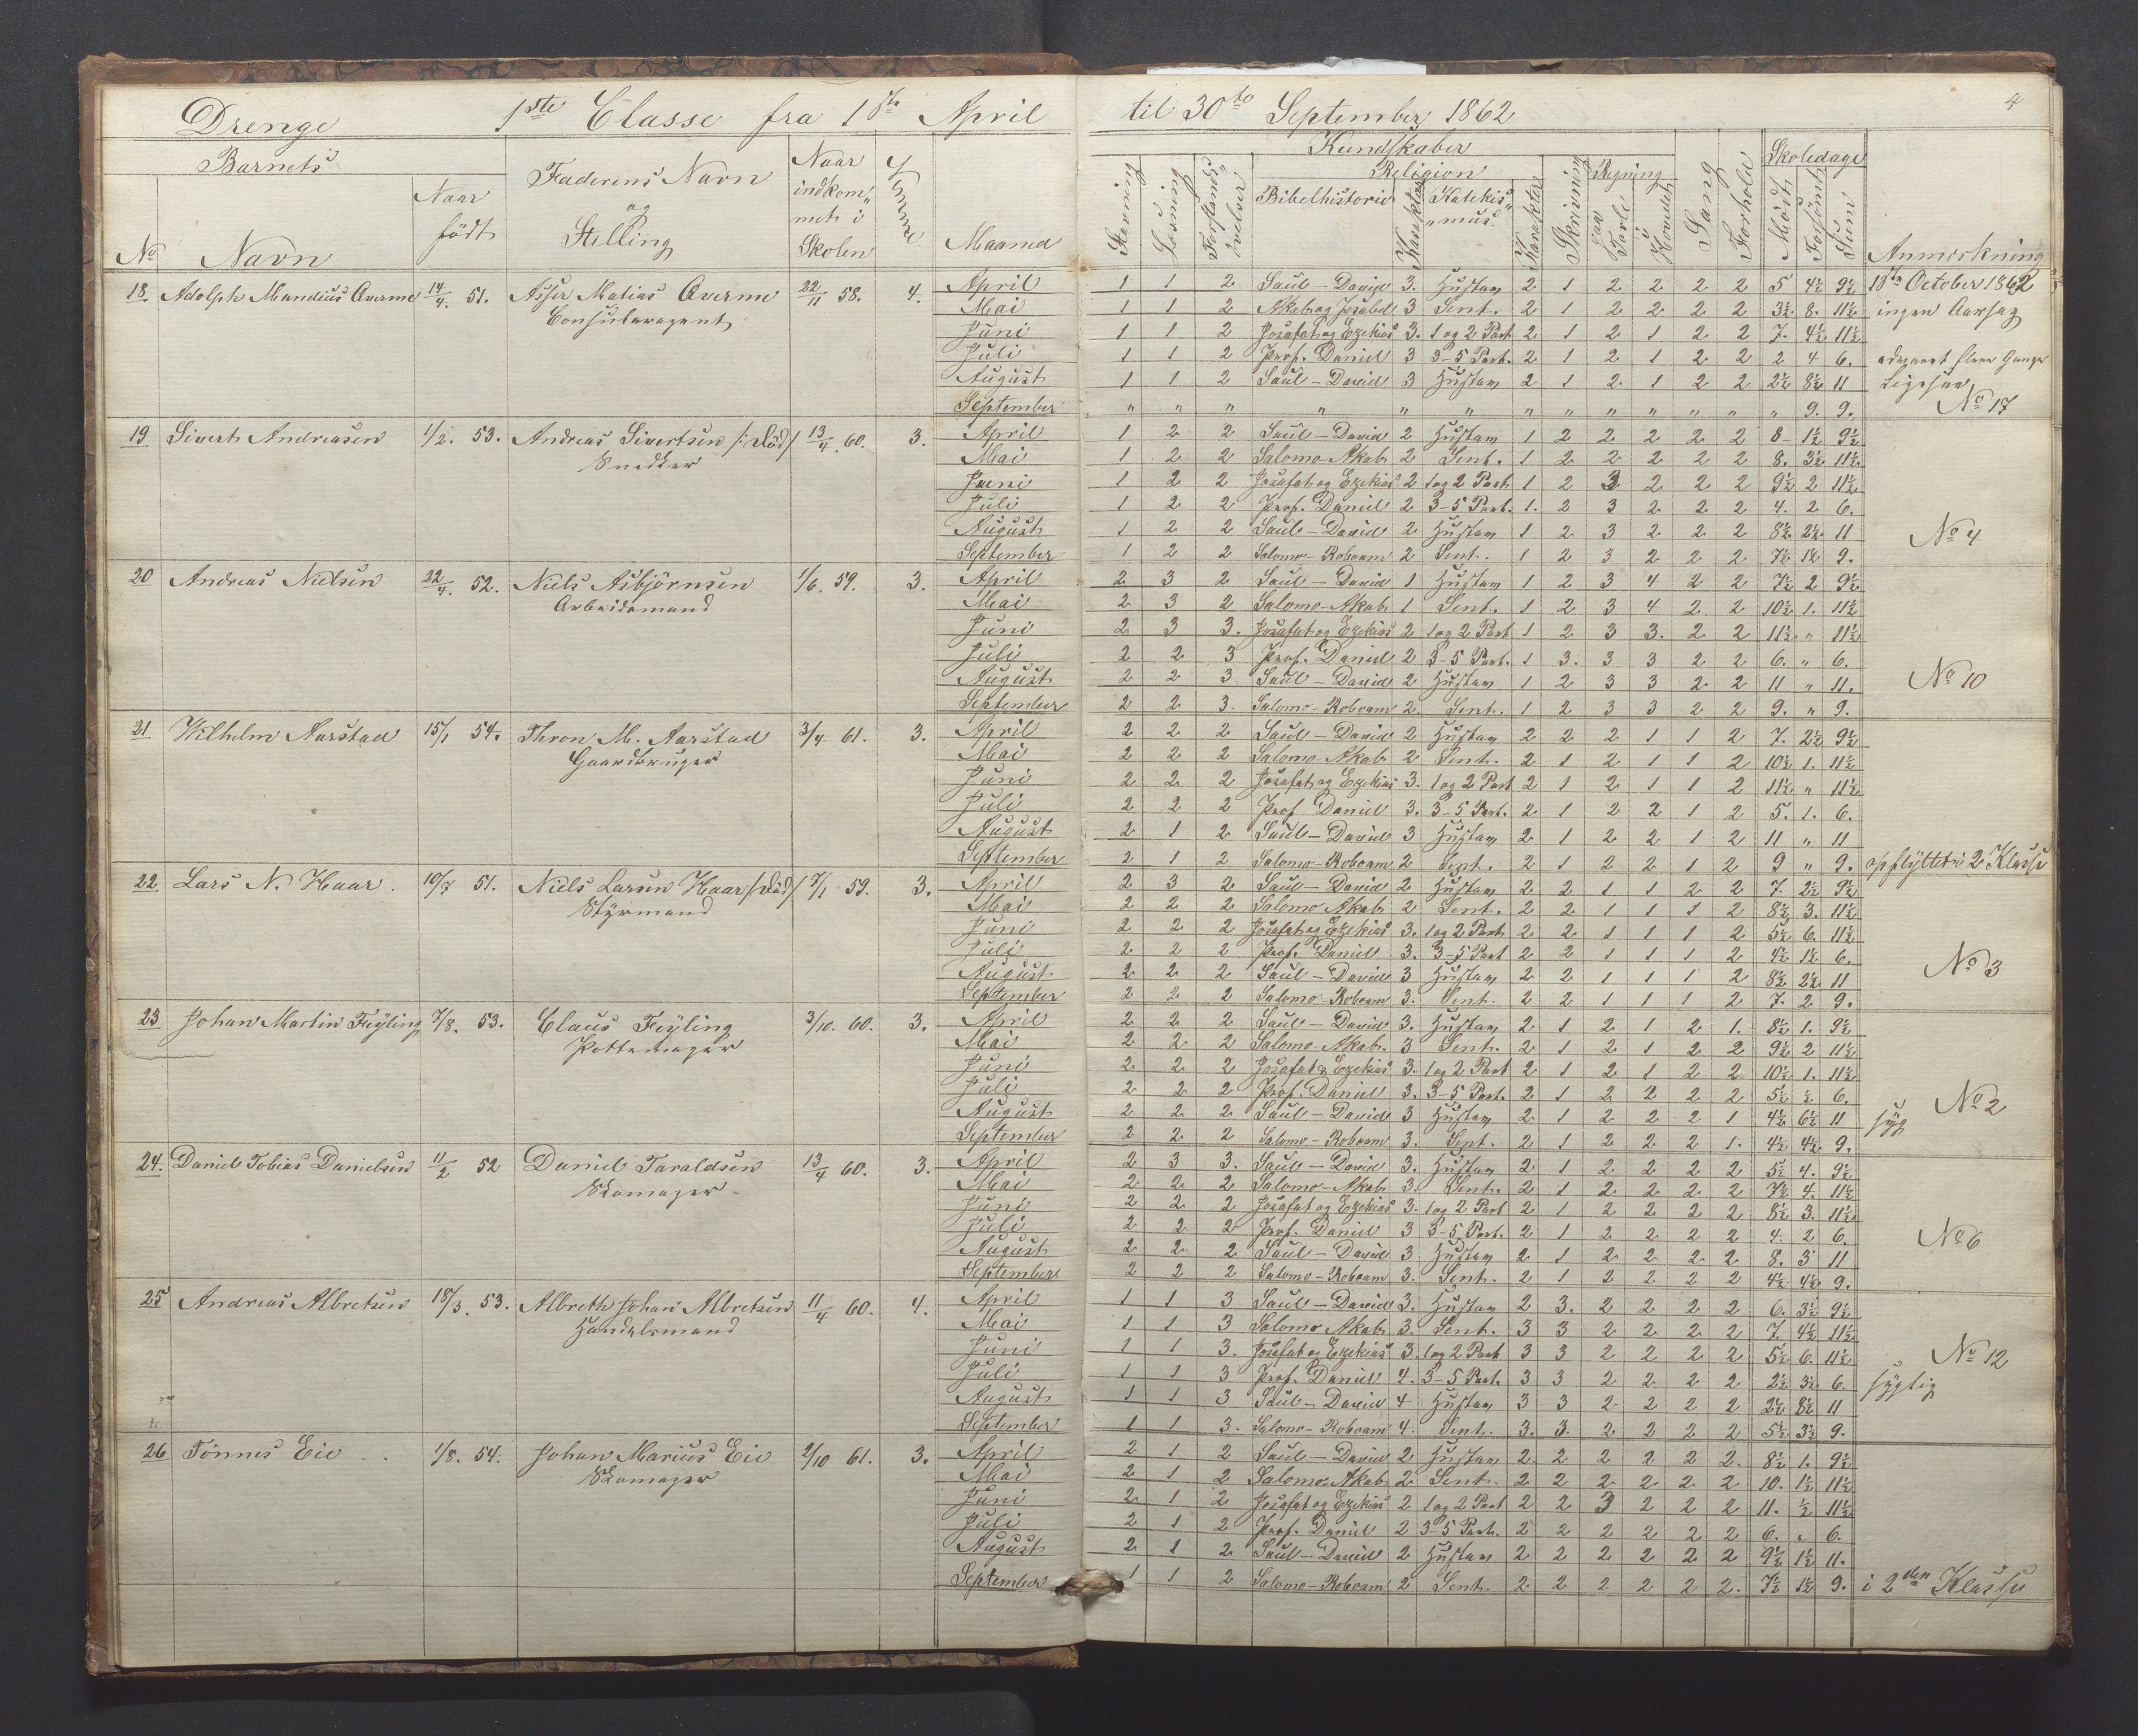 Drenge 1ste Classe fra 1ste April til 30te September 1862 4
Barnets
No Navn Naar födt Faderens Navn og Stilling Naar indkommet i Skolen Evne Maaned
Kundskaber
Stavning Læsning Forstandsövelser Religion Bibelhistorie Karakter Katekismus Karakter Skrivning Regning paa Tavle i Hovedet Sang Forhold Skoledage Mödt Forsömt Sum Anmerkning
18 Adolph Mandius Qverme 14/4. 51. Asser Matias Qverme 22/11 58. 4. April 1 1 2 Saul-David 3. Hustav 2 1 2 2 2 2 5 4½ 9½ 1ste October 1862
Consularagent Mai 1 1 2 Akab og Jesabel 3 Sent. 2 1 2 2 2 2 3½ 8. 11½ ingen Aarsag
Juni 1 1 2 Josafat og Ezekias 3. 1 og 2 Part 2 1 2 1 2 2 7. 4½ 11½
Juli 1 1 2 Prof. Daniel 3 3-5 Part. 2 1 2 1 2 2 2 4 6. advaret flere Gange
August 1 1 2 Saul-David 3 Hustav 2 1 2 1 2 2 2½ 8½ 11 Ligesaa
September " " " " " " " " " " " " " 9. 9. No 17
19 Sivert Andreasen 1/2. 53. Andreas Sivertsen /:död/ 13/4. 60. 3. April 1 2 2 Saul-David 2 Hustav 1 2 2 2 2 2 8 1½ 9½
Snedker Mai 1 2 2 Salomo-Akab 2 Sent. 1 2 2 2 2 2 8. 3½ 11½
Juni 1 2 2 Josafat og Ezekias 2 1 og 2 Part 1 2 3 2 2 2 9½ 2 11½
Juli 1 2 2 Prof. Daniel 2 3-5 Part. 1. 2 3 2 2 2 4. 2 6.
August 1 2 2 Saul-David 2 Hustav 1 2 3 2 2 2 8½ 2½ 11 No 4
September 1 2 2 Salomo-Roboam 2 Sent. 1 2 3 2 2 2 7½ 1½ 9.
20 Andreas Nielsen 22/4. 52. Niels Asbjörnsen 1/6. 59. 3. April 2 3 2 Saul-David 1 Hustav 1 2 3 4 2 2 7½ 2 9½
Arbeidsmand Mai 2 3 2 Salomo-Akab 1 Sent. 1 2 3 4 2 2 10½ 1. 11½
Juni 2 3 3. Josafat og Ezekias 2 1 og 2 Part 1 2 3 3. 2 2 11½ " 11½
Juli 2 2 3 Prof. Daniel 2 3-5 Part. 1 3. 3 3 2 2 6. " 6.
August 2 2 3 Saul-David 2 Hustav 1 2 3 3 2 2 11 " 11. No 10
September 2 2 3. Salomo-Roboam 2. Sent. 1 2 3 3 2 2 9. " 9.
21 Wilhelm Aarstad 15/1 54. Thron M. Aarstad 3/4 61. 3. April 2 2 2 Saul-David 2 Hustav 2 2 2 1 1 2 7. 2½ 9½
Gaardbruger Mai 2 2 2 Salomo-Akab 2 Sent. 2 1 2 1 1 2 10½ 1. 11½
Juni 2 2 2 Josafat og Ezekias 3. 1 og 2 Part 2 1 2 1 1 2 11½ " 11½
Juli 2 2 2 Prof Daniel 3. 3-5 Part. 2 1 2 2 1 2 5. 1. 6.
August 2 1 2 Saul-David 3 Hustav 2 1 2 2 1 2 11 " 11
September 2 1 2 Salomo-Roboam 2 Sent. 2 1 2 2 1 2 9 " 9. opflyttet i 2 Klasse
22 Lars N. Haar. 10/7 51. Niels Larsen Haar /:död/ 7/1 59. 3. April 2 3 2 Saul-David 2 Hustav 2 2 1 1 2 2 7. 2½ 9½
Styrmand Mai 2 2 2 Salomo Akab 2 Sent. 2 2 1 1 1 2 8½ 3. 11½
Juni 2 2 2 Josafat og Ezekias 3. 1 og 2 Part 2 2 1 1 1 2 5½ 6. 11½
Juli 2 2 2 Prof. Daniel 3. 3-5 Part 2 2 1 1 1 2 4½ 1½ 6.
August 2 2 2 Saul-David 3 Hustav 2 2 1 1 1 2 8½ 2½ 11 No 3
September 2 2 2 Salomo-Roboam 3. Sent. 2 2 1 1 1 2 7. 2 9.
23 Johan Martin Fejling 7/8. 53. Claus Fejling 3/10. 60. 3. April 2 2 2 Saul-David 3. Hustav 2 1 2 1 2 1. 8½ 1. 9½
Pottemager Mai 2 2 2 Salomo-Akab. 3 Sent. 2 1 2 1 2 2 9½ 2 11½
Juni 2 2 2 Josafat & Ezekias 3. 1 og 2 Part 2 1 2 1 2 2 10½ 1. 11½
Juli 2 2 2 Prof. Daniel 3. 3-5 Part. 2 1 2 2 2 2 5½ ½ 6.
August 2 2 2 Saul-David 3 Hustav 2 1 2 2 2 1 4½ 6½ 11 syg No 2
September 2 2 2 Salomo-Roboam 3. Sent. 2 1 2 2 2 1. 4½ 4½ 9.
24. Daniel Tobias Danielsen 11/2 52 Daniel Taraldsen 13/4 60. 3. April 2 3 3. Saul-David 3. Hustav 2 1 2 2 2 2 5½ 4. 9½
Skomager Mai 2 2 2 Salomo-Akab 3. Sent. 2 1 2 2 2 2 7½ 4. 11½
Juni 2 2 2 Josafat og Ezekias 3. 1 og 2 Part 2 1 2 2 2 2 8½ 3. 11½
Juli 2 2 2 Prof. Daniel 3 3-5 Part. 2 1 2 2 2 2 4. 2 6.
August 2 2 2 Saul-David 3 Hustav 2 1 2 2 2 2 8. 3 11 No 6
September 2 2 2 Salomo-Roboam 3. Sent. 2 1 2 2 2 2 4½ 4½ 9.
25 Andreas Albretsen 18/3. 53. Albreth Johan Albretsen 11/4 60. 4. April 1 1 3 Saul-David 3. Hustav 2 3. 2 2 2 2 6. 3½ 9½
Handelsmand Mai 1 1 3 Salomo Akab 3. Sent. 3 3 2 2 2 2 7. 4½ 11½
Juni 1 1 3. Josafat og Ezekias 3. 1 og 2 Part 3 3 2 2 2 2 5½ 6. 11½ No 12
Juli 1 1 3 Prof. Daniel 4. 3-5 Part. 3 3 2 2 2 2 2½ 3½ 6. sygelig
August 1 1 3 Saul-David 4 Hustav 3 3 2 2 2 2 2½ 8½ 11
September 1 1 3. Salomo-Roboam 4. Sent. 3. 3. 2 2 2 2 5½ 3½ 9.
26 Tönnes Eie 1/8. 54. Johan Marius Eie 2/10 61. 3. April 2 1 2 Saul-David 2 Hustav 2. 2 2 2 2 2. 8½ 1. 9½
Skomager Mai 2 1 2 Salomo Akab 2 Sent. 2 2 2 2 2 2 10. 1½ 11½
Juni 2 1 2 Josafat og Ezekias 2 1 og 2 Part 2 2 3 2 2 2 11. ½ 11½
Juli 2 1 2 Prof. Daniel 2 3-5 Part. 2 2 2 2 2 2 6. " 6.
August 2 1 2 Saul-David 2 Hustav 2 2 2 2 2 2 9½ 1½ 11.
September 1 1 2 Salomo-Roboam 2 Sent. 2 2 2 2 2 2. 7½ 1½ 9. i 2den Klasse